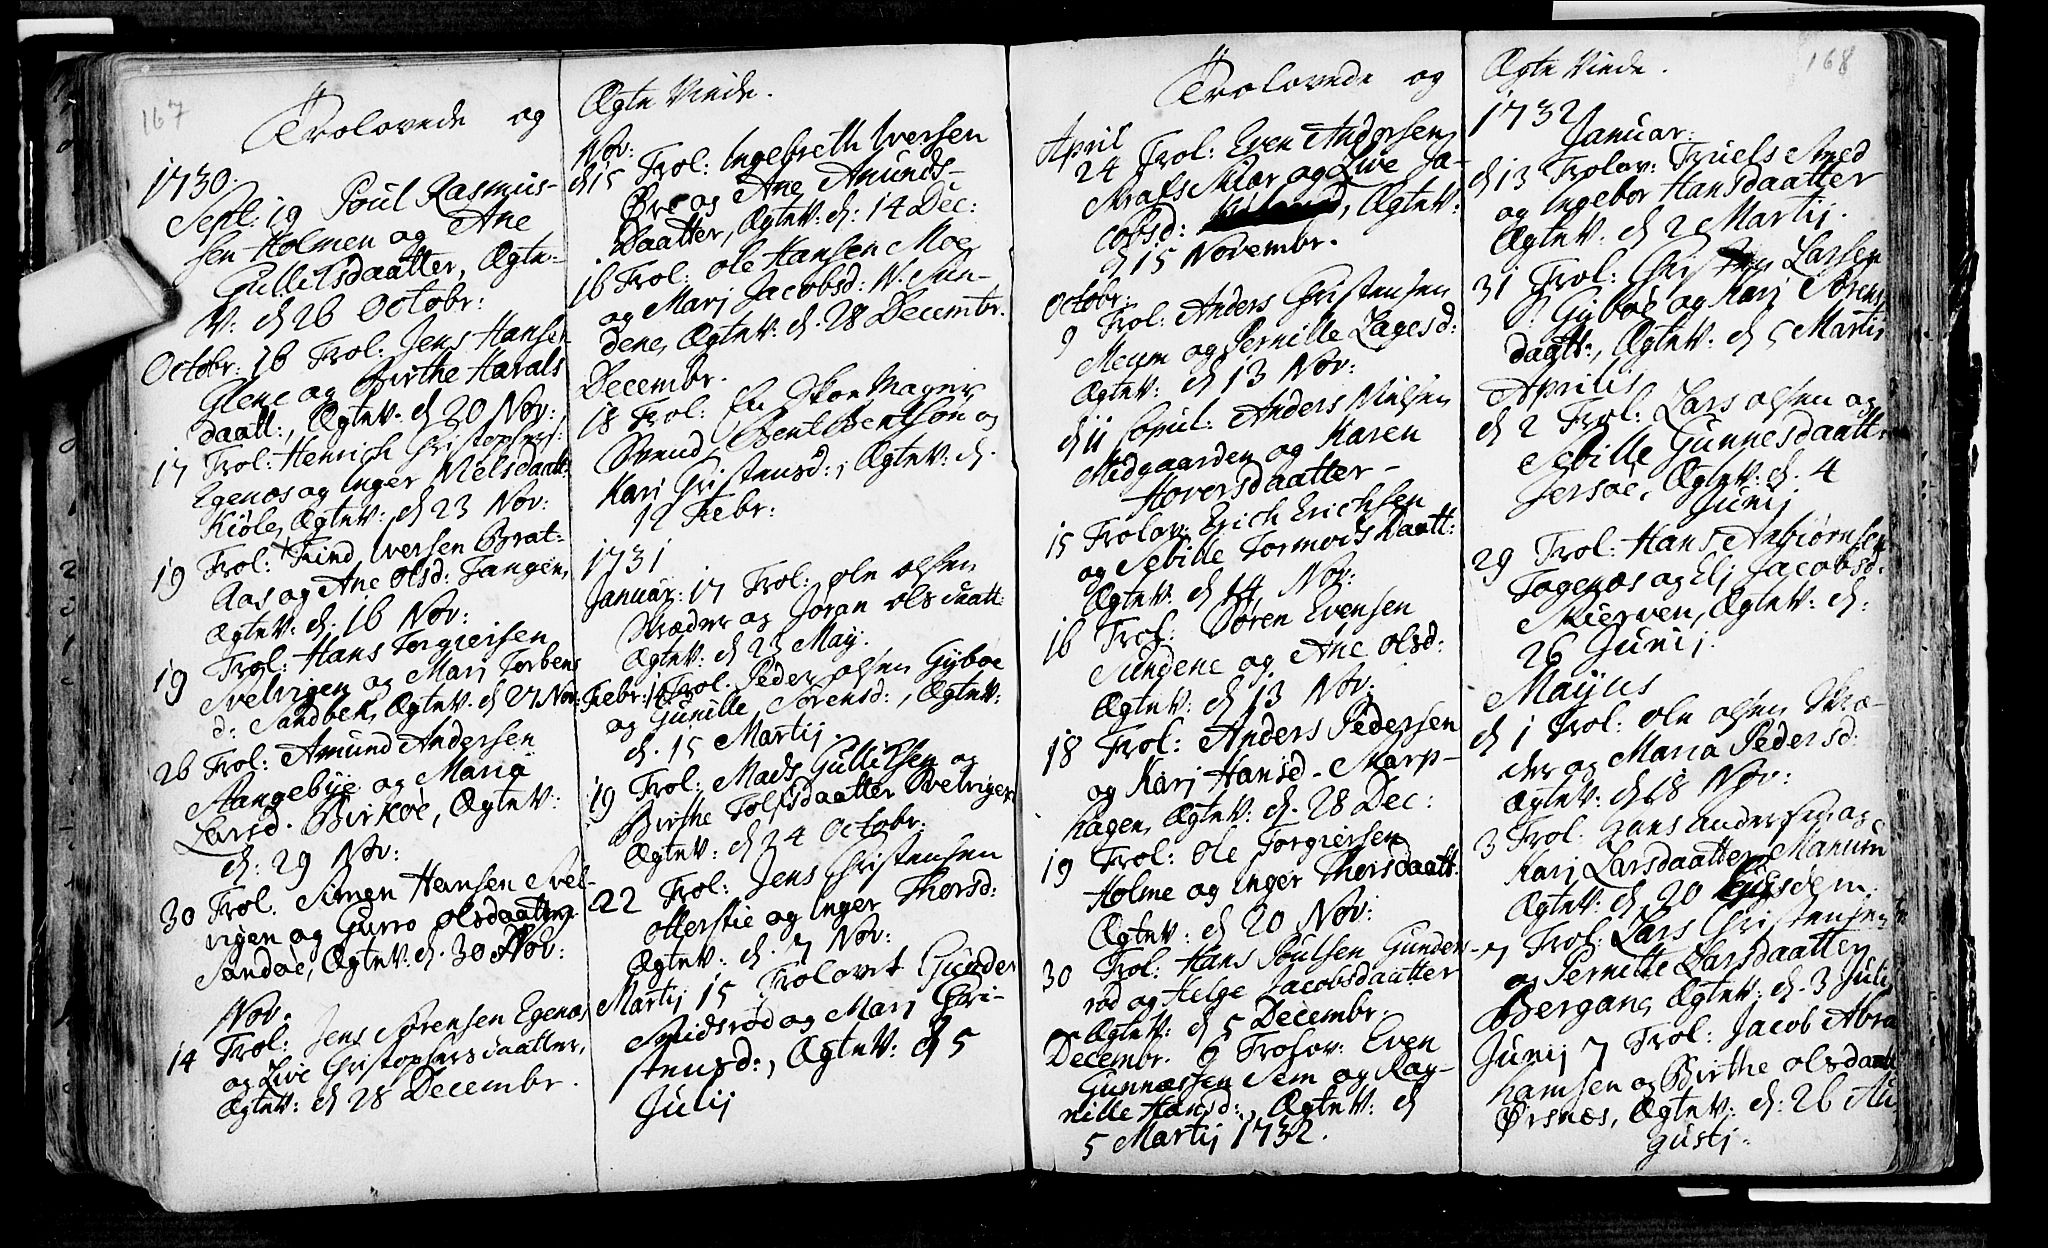 167
Trolovede og
1730.
Sept: 19 Poul Rasmus-
sen Holmen og Ane
Gullilsdaatter, Ægte-
V: d 26 Octobr:
Octobr: 16 Trol: Jens Hansen
Glene og Birthe Harals
daatt:, Ægtev: d 20 Nov:
17 Trol: Henrich Christophers:
Egenæs og Inger Nielsdaatt:
Kiöle, Ægtev: d 23 Nov:
19 Trol: Find Iversen Brat-
Aas og Ane Olsd: Tangen,
Ægtev: d. 16 Nov:
19 Trol: Hans Torgiersen
Svelvigen og Mari Torbens
d: Sandben, Ægtev. d. 27 Nov:
26 Trol: Amund Andersen
Stangebye og Maria
Larsd. Birköe, Ægtev:
d. 29 Nov:
30 Trol. Simen Hansen Svel-
vigen og Gurro Olsdaatter
Sandöe, Ægtev. d. 30 Nov:
Nov.
14 Trol: Jens Sörensen Egenæs
og Live Christophersdaatter,
Ægtev: d 28 Decembr.
Ægte Viede.
Nov:
d 15 Trol: Ingebreth Iversen
Öre og Ane Amunds-
Daatter, Ægtev: d: 14 Dec:
16 Trol: Ole Hansen Moe
og Mari Jacobsd: N: Sun-
dene, Ægtev: d. 28 Decembr.
Decembr.
18 Trol: En Skoe Mager
Svend, Bent Bentsön og
Kari Christensd:, Ægtev: d.
12 Febr:
1731
Januar: 17 Trol: Ole Olsen
Skræder og Joran Olsdaatt:
Ægtev: d 23 May.
Febr: 16 Trol. Peder Olsen Gyböe
og Gunille Sörensd:, Ægtev:
d. 15 Martij.
19 Trol: Mads Gullilsen og
Birthe Tolfsdaatter Svelvigen
Ægtev: d 24 Octobr:
22 Trol: Jens Christensen
Otterstie og Inger Thorsd:
Ægtev: d. 7 Nov:
Martij 15 Trolovet Gunder
Smidsröd og Mari Chri-
stensd:, Ægtev: d 5
Julij
Trolovede og
April
24 Trol: Even Andersen
Krafs Skiær og Live Ja-
cobsd: , Ægtev:
d 15 Novembr.
Octobr:
9 Trol: Anders Christensen
Meum og Pernille Lagesd:
Ægtev: d 13 Nov:
d 11 Copul: Anders Nielsen
Midgaarden og Karen
Hoversdaatter -
15 Trolov: Erich Erichsen
og Sebille Tormodsdaatt:
Ægtev: d 14 Nov:
16 Trol: Sören Evensen
Sundene og Ane Olsd:
Ægtev: d 13 Nov:
18 Trol: Anders Pedersen
og Kari Hansd - Marp-
hagen, Ægtev: d. 28 Dec:
19 Trol: Ole Torgiersen
Holme og Inger Thorsdaatt:
Ægtev: d 20 Nov:
30 Trol: Hans Poulsen Gunders-
röd og Helge Jacobsdaatter
Ægtev: d 5 Decembr.
Decembr. 6 Trolov: Even
Gunnersen Sem og Rag-
nille Hansd:, Ægtev: d
5 Martij 1732.
168
Ægte Viede.
1732
Januar:
d 13 Trolov: Truels Smed
og Ingebor Hansdaatter
Ægtev: d 2 Martij.
31 Trol: Christen Larsen
Gyböe og Kari Sörens
daatt:, Ægtev: d 5 Martij
Aprilis
d 2 Trol: Lars Olsen og
Sebille Gunnesdaatter
Jersöe, Ægtev: d. 4
Junij
29 Trol: Hans Anbiörnsen
Togenæs og Eli Jacobsd:
Skierven, Ægtev: d:
26 Junij.
Majus
d 1 Trol: Ole Olsen Skræ-
der og Maria Pedersd:
Ægtev: d 18 Nov:
3 Trol: Hans Andersen og
Kari Larsdaatter Manum
Ægtev: d 20 Ejusdem.
7 Trol: Lars Christensen
og Pernille Larsdaatter
Bergan, Ægtev: d. 3 Julij
Junij 7 Trol: Jacob Abra
hamsen og Birthe Olsdaatt
Örsnæs, Ægtev: d: 26 Au-
gustj.